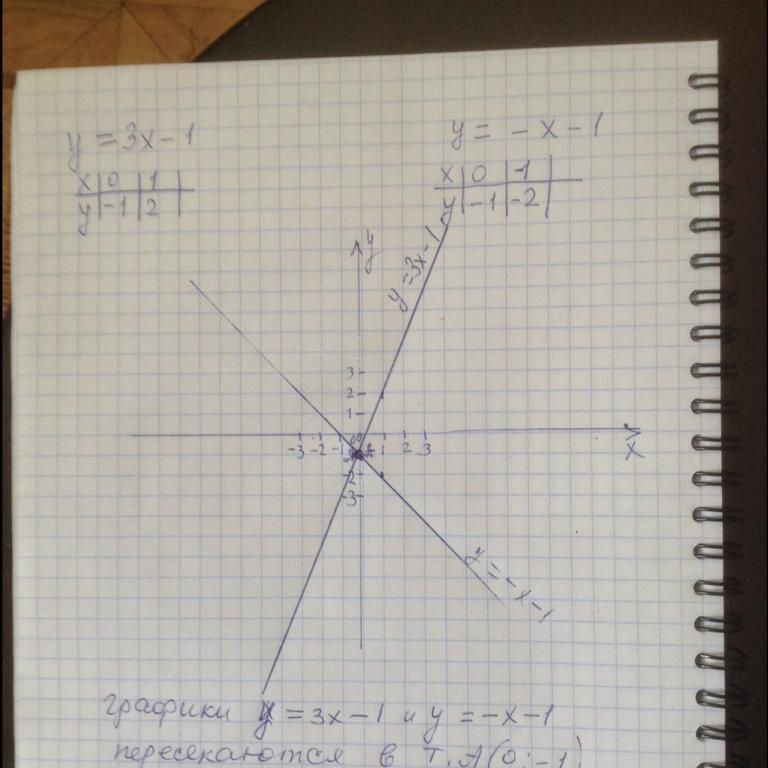 y = 3x - 1
x | 0 | 1 |
y | -1 | 2 |
y = - x - 1
x | 0 | 1 |
y | -1 | -2 |
y
y = 3x - 1
3
2
1
0
-3 -2 -1 A 1 2 3
x
-1
-2
-3
y = - x - 1
графики y = 3x - 1 и y = - x - 1
пересекаются в т. A (0; -1)